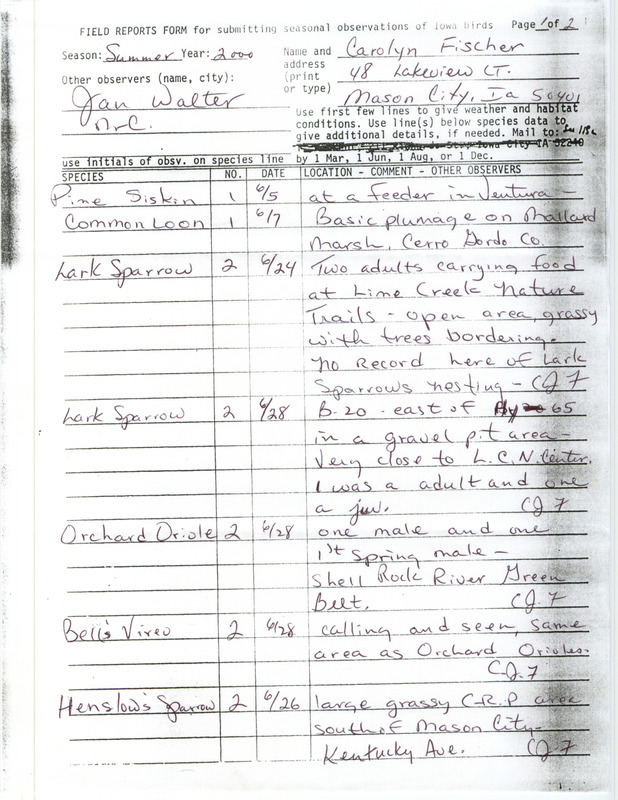 FIELD REPORTS FORM for submitting seasonal observations of Iowa birds Page 1 of 2
Season: Summer Year: 2000 Name and Carolyn Fischer
address 48 Lakeview CT.
Other observers (name, city): (print
Jan Walter or type) Mason City, Ia 50401
M.C. Use first few lines to give weather and habitat
conditions. Use line(s) below species data to
give additional details, if needed. Mail to:
City IA 52240
use initials of obsv. on species line by 1 Mar, 1 Jun, 1 Aug, or 1 Dec.
SPECIES NO. DATE LOCATION - COMMENT - OTHER OBSERVERS
Pine Siskin 1 6/5 at a feeder in Ventura -
Common Loon 1 6/7 Basic plumage on Mallard
Marsh, Cerro Gordo Co.
Lark Sparrow 2 6/24 Two adults carrying food
at Lime Creek Nature
Trails - open area, grassy
with trees bordering.
No Record here of Lark
Sparrows nesting - CJF
Lark Sparrow 2 6/28 B-20 - east of 65
in a gravel pit area -
Very close to L.C.N. Center.
1 was a adult and one
a juv. CJF
Orchard Oriole 2 6/28 one male and one
1st Spring male -
Shell Rock River Green
Belt. CJF
Bell's Vireo 2 6/28 calling and seen, same
area as Orchard Orioles.
CJF
Henslow's Sparrow 2 6/26 large grassy C-R-P area
south of Mason City -
Kentucky Ave. CJF